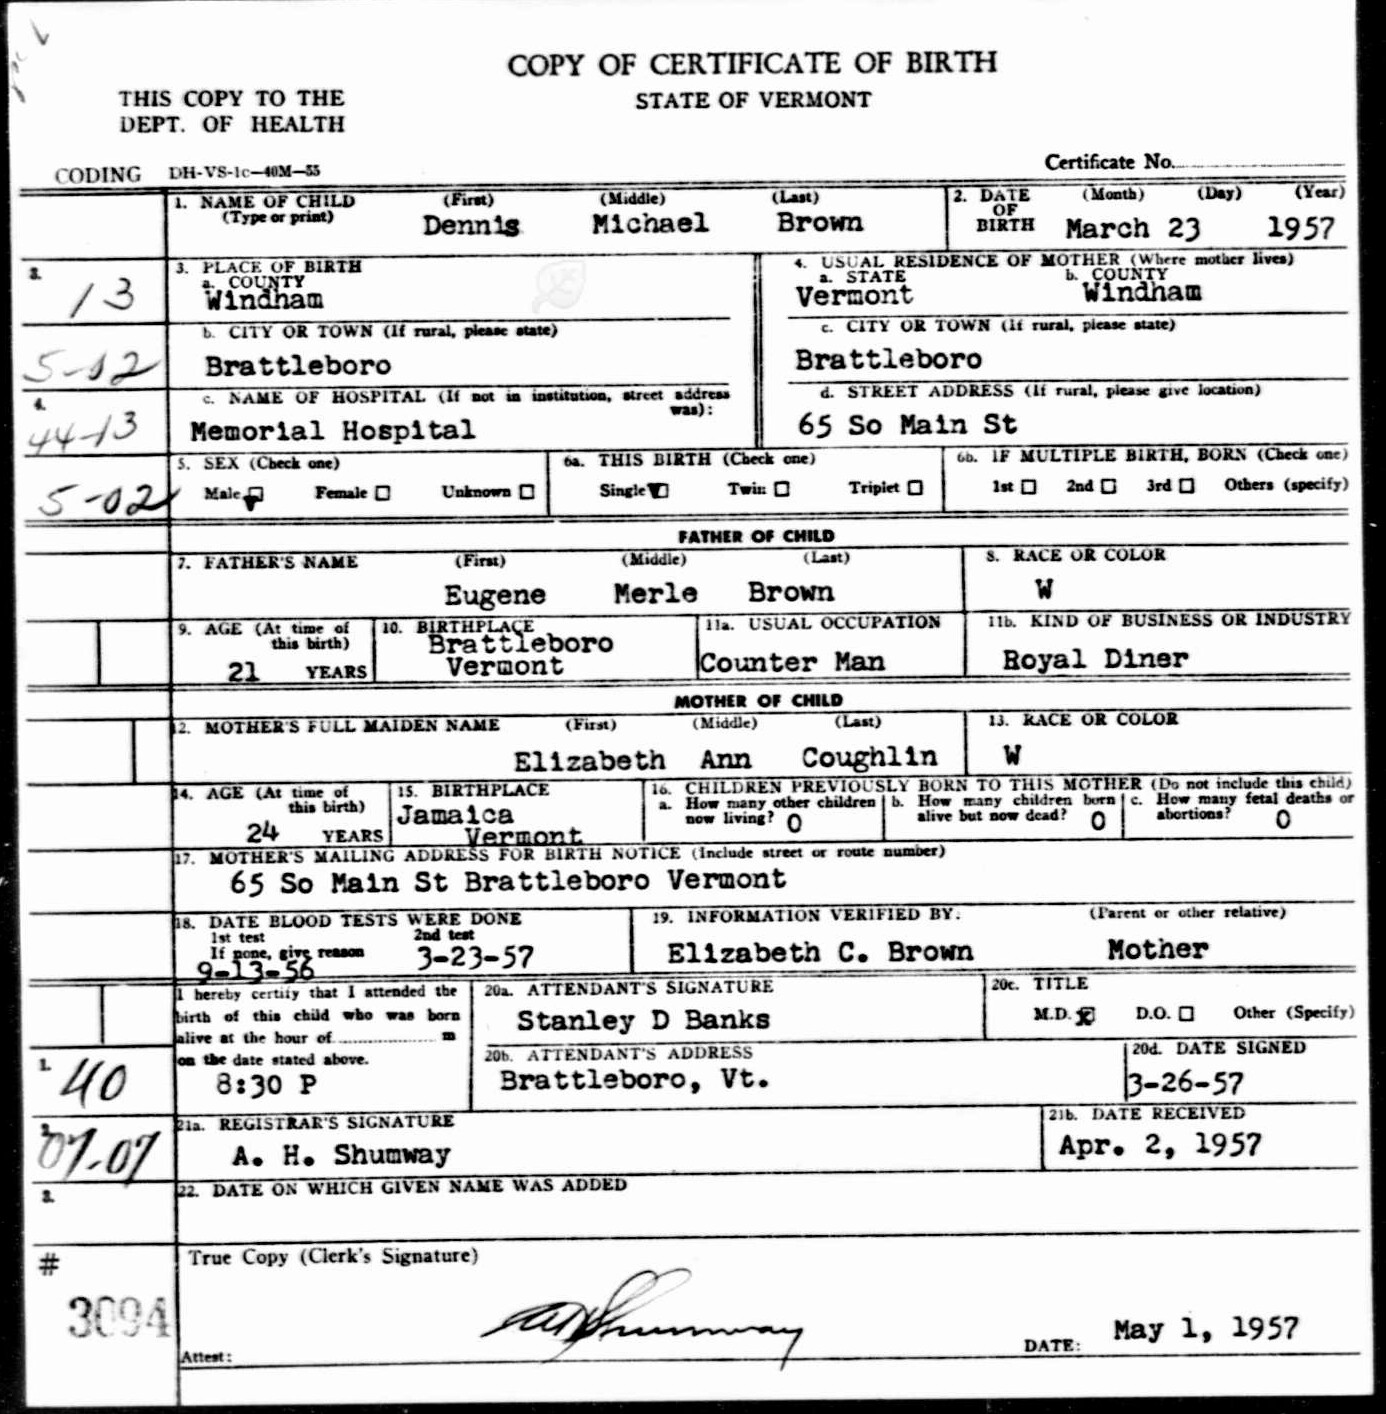 COPY OF CERTIFICATE OF BIRTH
STATE OF VERMONT
THIS COPY TO THE
DEPT. OF HEALTH
CODING DH-VS-1c—40M—55
Certificate No.
1. NAME OF CHILD (First) (Middle) (Last)
(Type or print)
Dennis Michael Brown
2. DATE OF BIRTH (Month) (Day) (Year)
March 23 1957
3. 13
3. PLACE OF BIRTH
a. COUNTY
Windham
4. USUAL RESIDENCE OF MOTHER (Where mother lives)
a. STATE b. COUNTY
Vermont Windham
5-02
b. CITY OR TOWN (If rural, please state)
Brattleboro
c. CITY OR TOWN (If rural, please state)
Brattleboro
4. 44-13
c. NAME OF HOSPITAL (If not in institution, street address
was):
Memorial Hospital
d. STREET ADDRESS (If rural, please give location)
65 So Main St
5-02
5. SEX (Check one)
Male Female Unknown
6a. THIS BIRTH (Check one)
Single Twin Triplet
6b. IF MULTIPLE BIRTH, BORN (Check one)
1st 2nd 3rd Others (specify)
FATHER OF CHILD
7. FATHER'S NAME (First) (Middle) (Last)
Eugene Merle Brown
8. RACE OR COLOR
W
9. AGE (At time of
this birth)
21 YEARS
10. BIRTHPLACE
Brattleboro
Vermont
11a. USUAL OCCUPATION
Counter Man
11b. KIND OF BUSINESS OR INDUSTRY
Royal Diner
MOTHER OF CHILD
12. MOTHER'S FULL MAIDEN NAME (First) (Middle) (Last)
Elizabeth Ann Coughlin
13. RACE OR COLOR
W
14. AGE (At time of
this birth)
24 YEARS
15. BIRTHPLACE
Jamaica
Vermont
16. CHILDREN PREVIOUSLY BORN TO THIS MOTHER (Do not include this child)
a. How many other children
now living? 0
b. How many children born
alive but now dead? 0
c. How many fetal deaths or
abortions? 0
17. MOTHER'S MAILING ADDRESS FOR BIRTH NOTICE (Include street or route number)
65 So Main St Brattleboro Vermont
18. DATE BLOOD TESTS WERE DONE
1st test 2nd test
If none, give reason
9-13-56 3-23-57
19. INFORMATION VERIFIED BY: (Parent or other relative)
Elizabeth C. Brown Mother
I hereby certify that I attended the
birth of this child who was born
alive at the hour of m
on the date stated above.
8:30 P
20a. ATTENDANT'S SIGNATURE
Stanley D Banks
20c. TITLE
M.D. D.O. Other (Specify)
1. 40
20b. ATTENDANT'S ADDRESS
Brattleboro, Vt.
20d. DATE SIGNED
3-26-57
2. 07-07
21a. REGISTRAR'S SIGNATURE
A. H. Shumway
21b. DATE RECEIVED
Apr. 2, 1957
3.
22. DATE ON WHICH GIVEN NAME WAS ADDED
#
3094
True Copy (Clerk's Signature)
AHShumway
Attest:
DATE: May 1, 1957